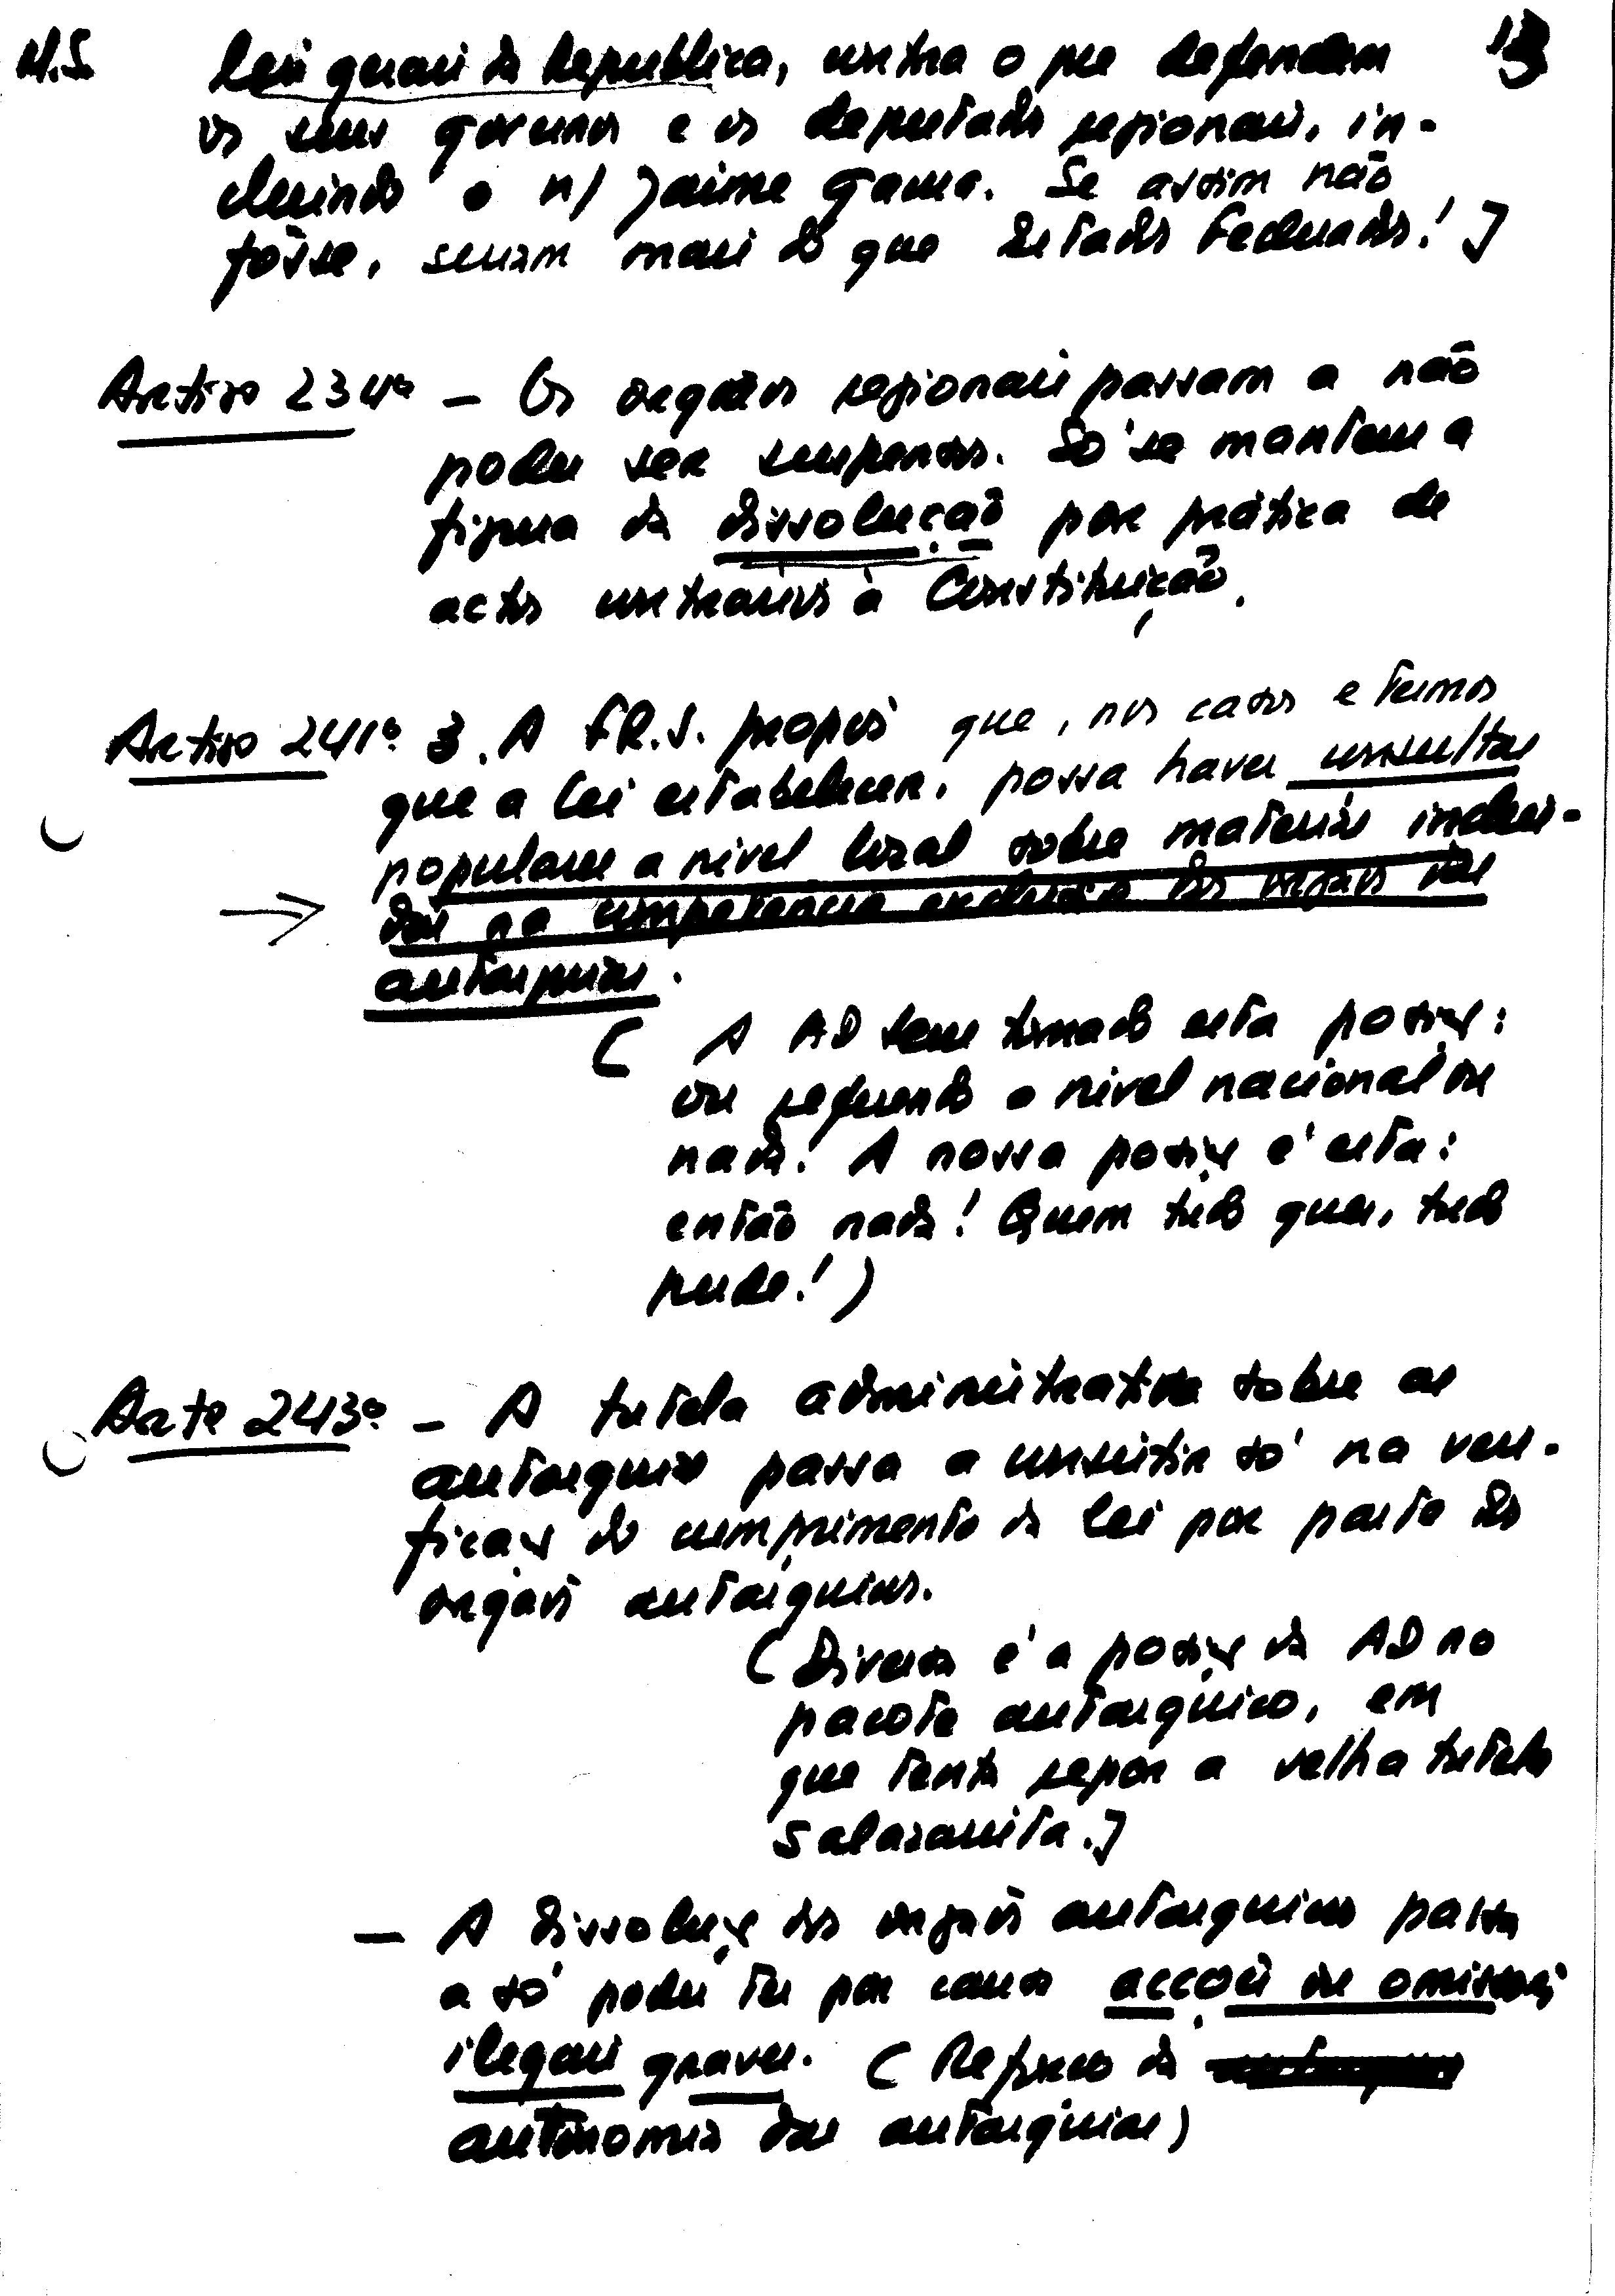 M.S. 13
leis gerais da República, contra o que defendem
os seus governos e os deputados regionais, in-
cluindo o n/ Jaime Gama. Se assim não
fôsse, seriam mais do que Estados Federados!]
Artigo 234º - Os orgãos regionais passam a não
poder ser suspensos. Só se mantem a
figura da dissolução por prática de
actos contrários à Constituição.
Artigo 241º 3. A F.R.S. propôs que, nos casos e termos
que a lei estabelecer, possa haver consultas
populares a nivel local sobre matérias incluí-
das na competência exclusiva dos orgãos das
autarquias.
( A AD tem tomado esta posiç:
ou referendo a nivel nacional ou
nada! A nossa posiç é esta:
então nada! Quem tudo quer, tudo
perde!)
Arte 243º - A tutela administrativa sobre as
autarquias passa a consistir só na veri-
ficaç do cumprimento da lei por parte dos
orgãos autárquicos.
(Diversa é a posiç da AD no
pacote autárquico, em
que tenta repor a velha tutela
Salazarista.]
- A dissoluç dos orgãos autárquicos passa
a só poder ter por causa acções ou omissões
ilegais graves. ( Reforço da
autonomia das autarquias)